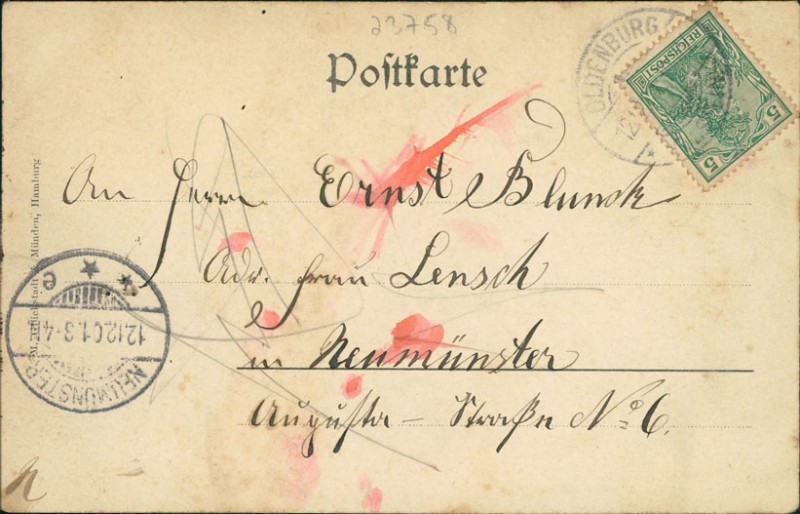 23758
Postkarte
OLDENBURG
REICHSPOST
5
5
An Herrn Ernst Blunck
Adr. Frau Lensch
in Neumünster
Augusta-Straße No 6.
M. Glückstadt & Münden, Hamburg
NEUMÜNSTER
12.12.01.3-4
* * e